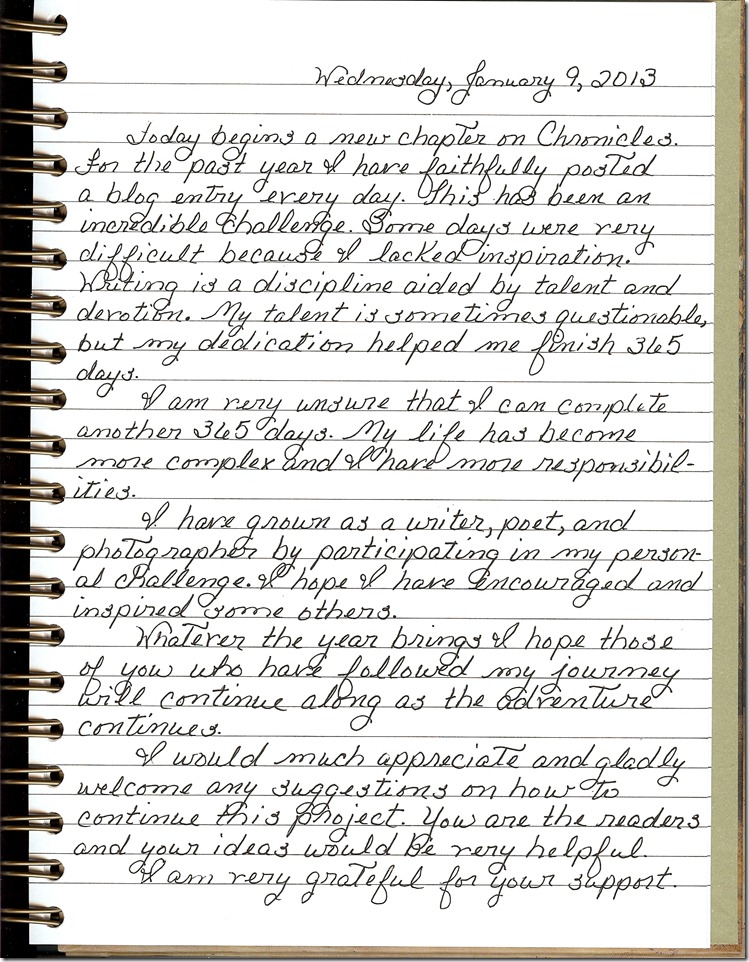 Wednesday, January 9, 2013
Today begins a new chapter on Chronicles.
For the past year I have faithfully posted
a blog entry every day. This has been an
incredible challenge. Some days were very
difficult because I lacked inspiration.
Writing is a discipline aided by talent and
devotion. My talent is sometimes questionable,
but my dedication helped me finish 365
days.
I am very unsure that I can complete
another 365 days. My life has become
more complex and I have more responsibil-
ities.
I have grown as a writer, poet, and
photographer by participating in my person-
al challenge. I hope I have encouraged and
inspired some others.
Whatever the year brings I hope those
of you who have followed my journey
will continue along as the adventure
continues.
I would much appreciate and gladly
welcome any suggestions on how to
continue this project. You are the readers
and your ideas would be very helpful.
I am very grateful for your support.